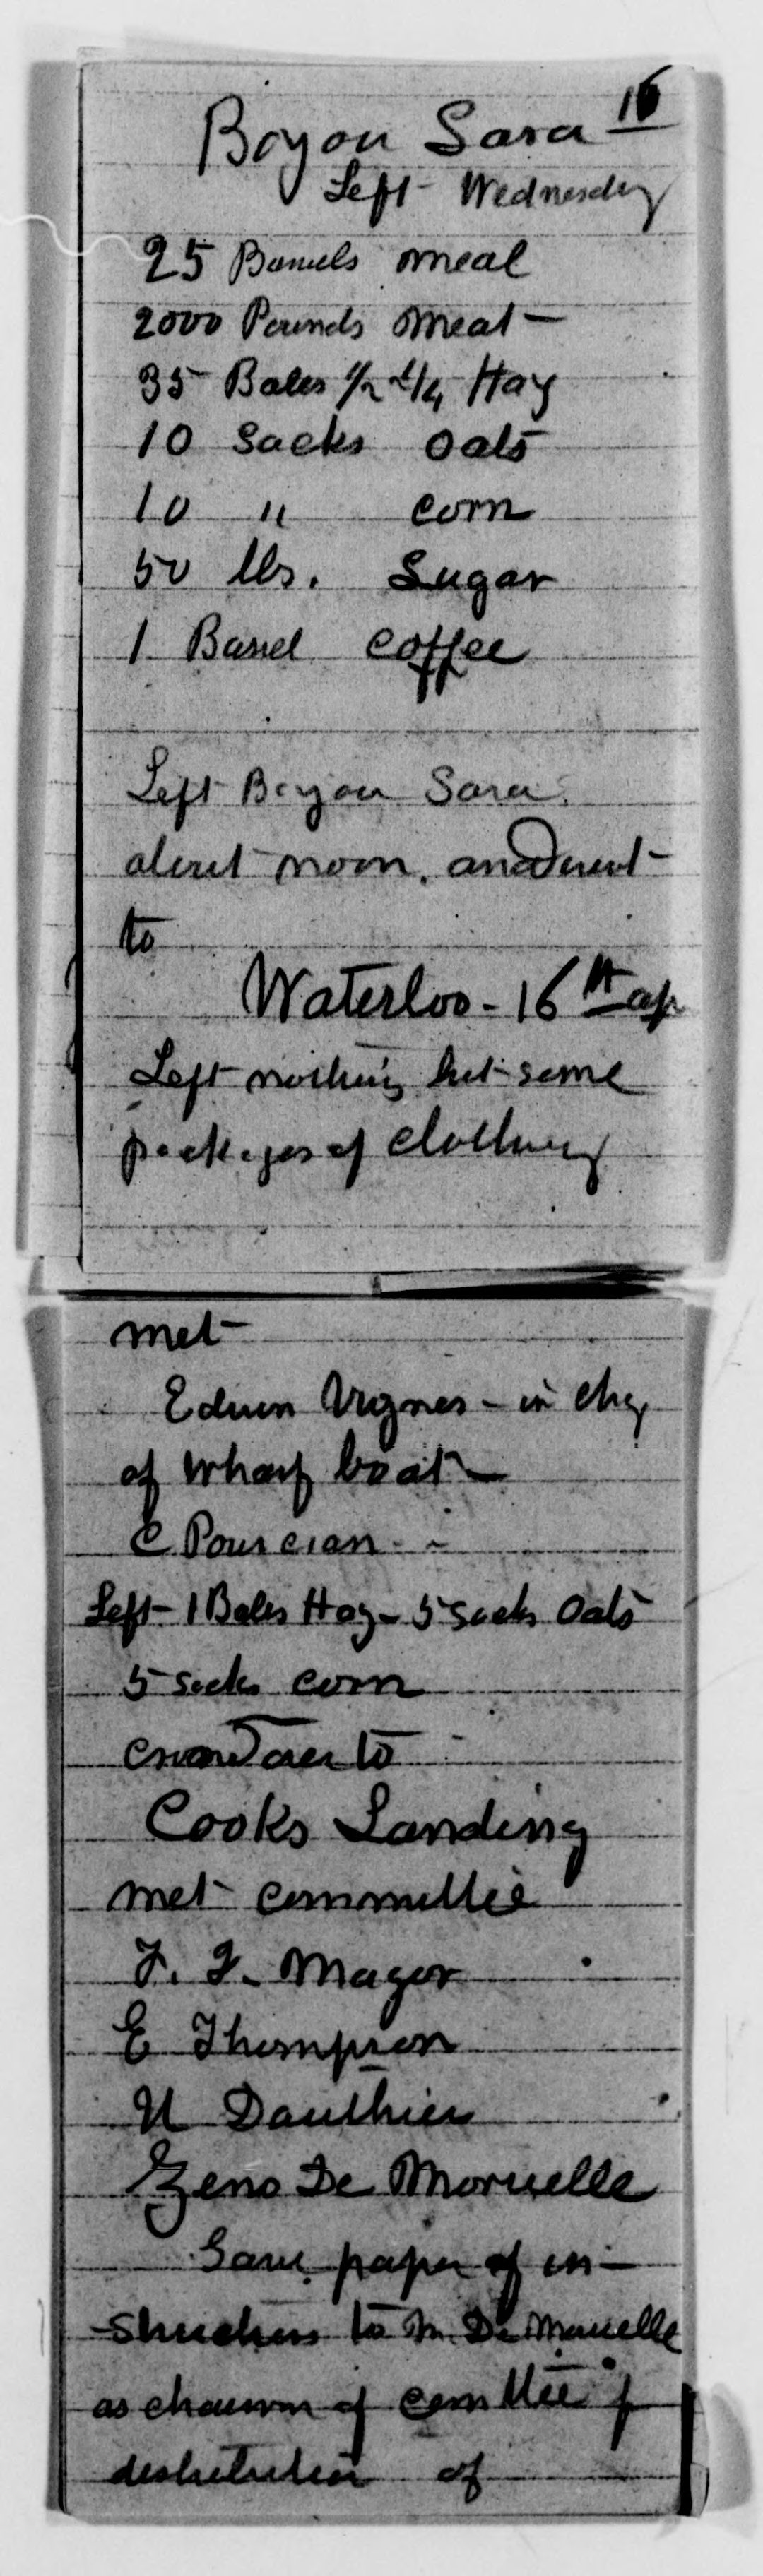 Bayou Sara 16
Left Wednesday
25 Barrels meal
2000 Pounds meat -
35 Bales 1/2 & 1/4 Hay
10 Sacks oats
10 " corn
50 lbs. Sugar
1 Barrel coffee
Left Bayou Sara
about noon. and went
to
Waterloo - 16th ap
Left nothing but some
packages of clothing
met
Edwin Vignes - in chg
of wharf boat -
C Pourcian -
Left - 1 Bales Hay - 5 sacks Oats
5 sacks corn
to
Cooks Landing
met committee
F. F. Mayor
E Thompson
U Dauthier
Zeno De Moruelle
Gave paper of in-
structions to M. De Moruelle
as chairman of comttee f
distribution of